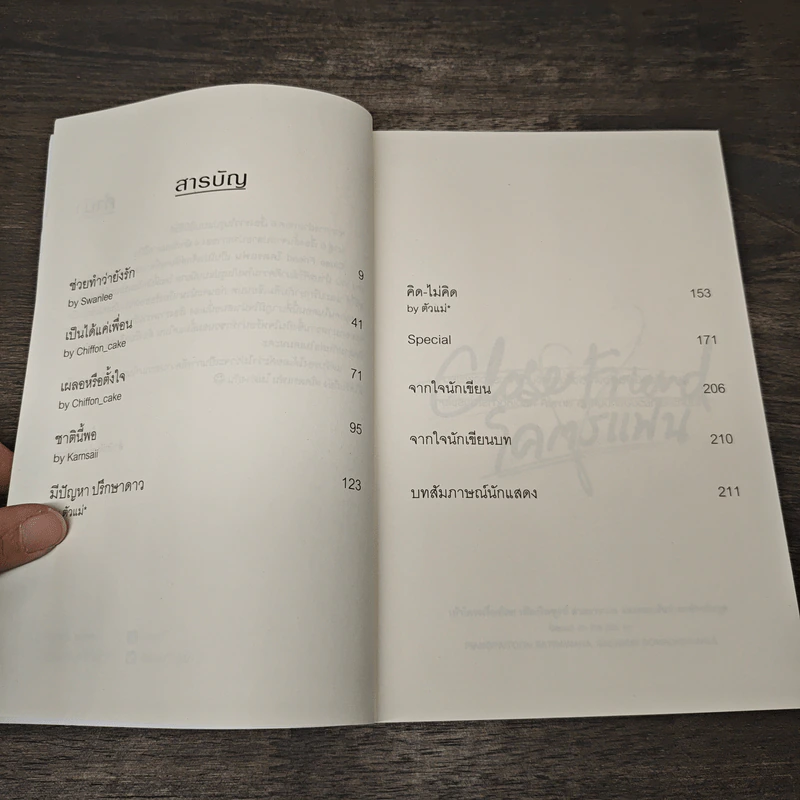 สารบัญ
ช่วยทำว่ายังรัก 9
by Swanlee
เป็นได้แค่เพื่อน 41
by Chiffon_cake
เผลอหรือตั้งใจ 71
by Chiffon_cake
ชาตินี้พอ 95
by Karnsaii
มีปัญหา ปรึกษาดาว 123
ตัวแม่*
คิด-ไม่คิด 153
by ตัวแม่*
Special 171
จากใจนักเขียน 206
จากใจนักเขียนบท 210
บทสัมภาษณ์นักแสดง 211
Close Friend
โคตรแฟน